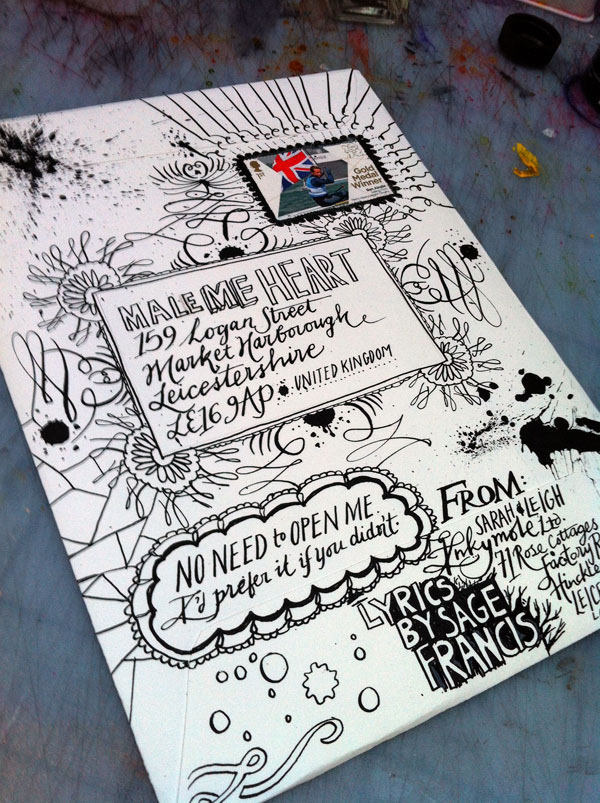 1st
Gold
Medal
Winner
MALE ME HEART
159 Logan Street
Market Harborough
Leicestershire
LE16 9AP • UNITED KINGDOM
NO NEED to OPEN ME.
I'd prefer it if you didn't.
FROM:
SARAH LEIGH
Inkymole Ltd
71 Rose Cottages
Factory R
Hinckle
LEIC
LYRICS
BY SAGE
FRANCIS